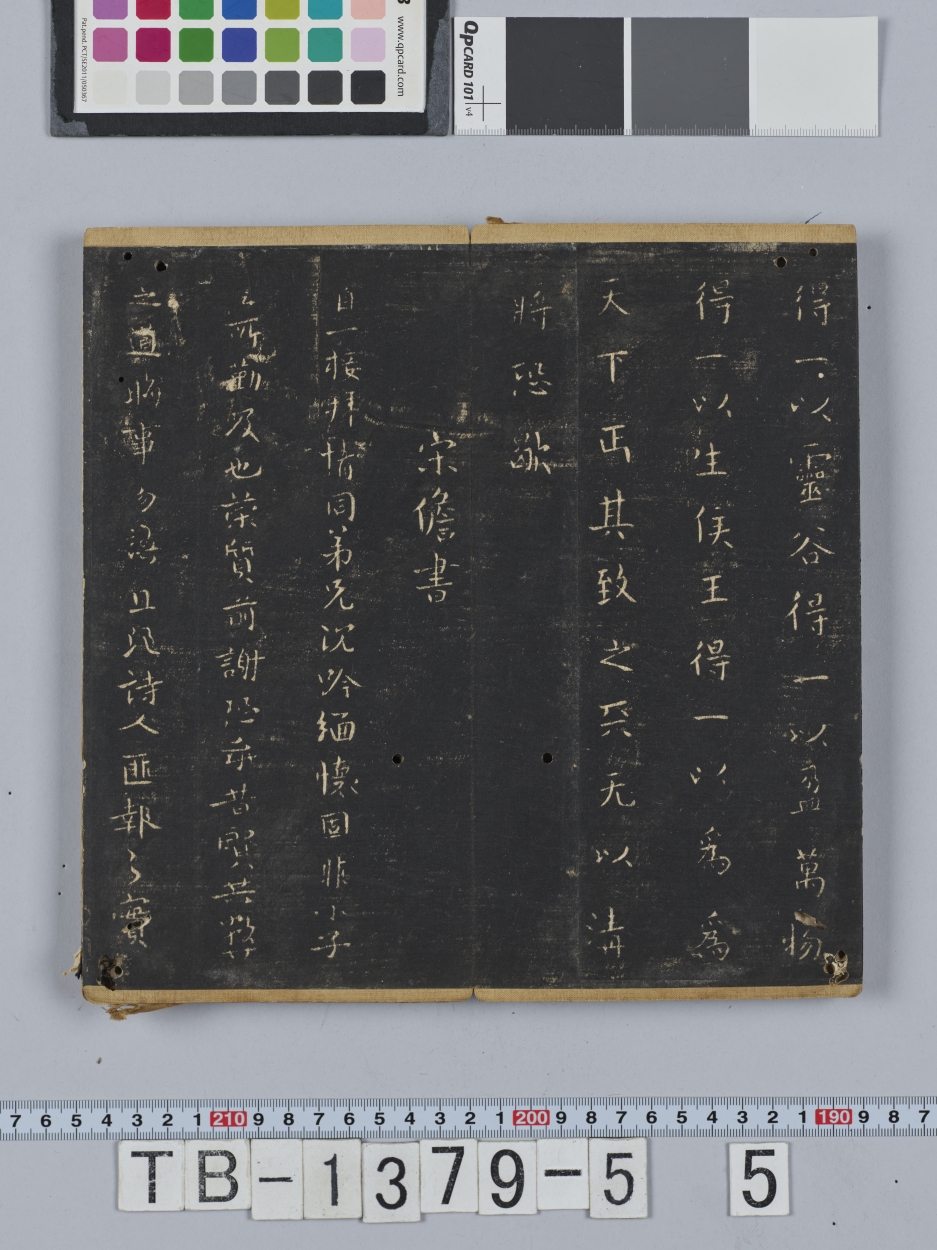 www.qpcard.com
Pat.pend. PCT/SE2011/050367
QPCARD 101 v4
得一以靈谷得一以盈萬物
得一以生侯王得一以為為
天下正其致之天无以清
將恐歇
宋儋書
自一接拜情同弟兄沈吟緬懷固非小子
所勤及也榮質前謝恐辜昔賢共弊
之道將事勿諼且況詩人匪報之實
7 6 5 4 3 2 1 210 9 8 7 6 5 4 3 2 1 200 9 8 7 6 5 4 3 2 1 190 9 8 7
TB-1379-5 5